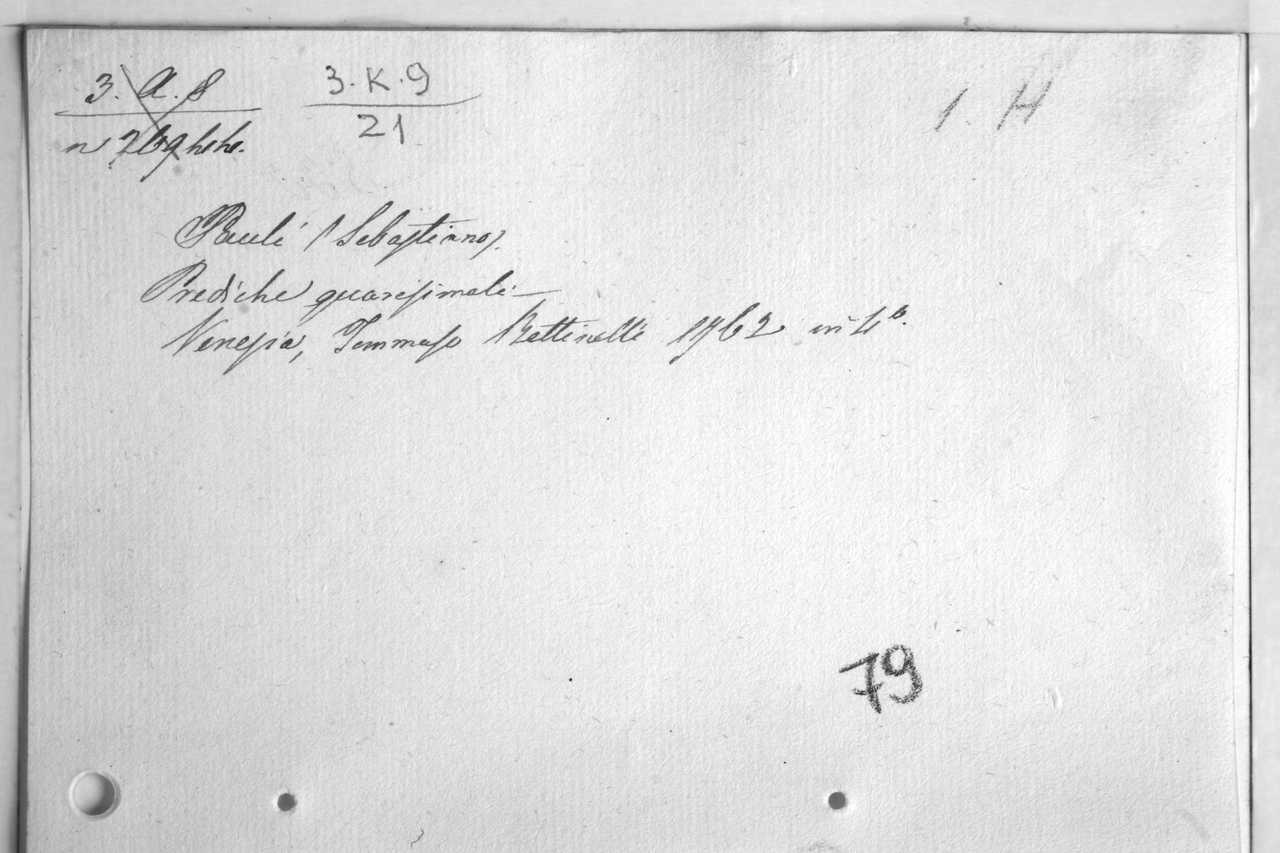 3. A. 8
3.K.9
21
1. H
Pauli (Sebastiano).
Prediche quaresimali
Venezia, Tommaso Bettinelli 1762 in 4°.
79